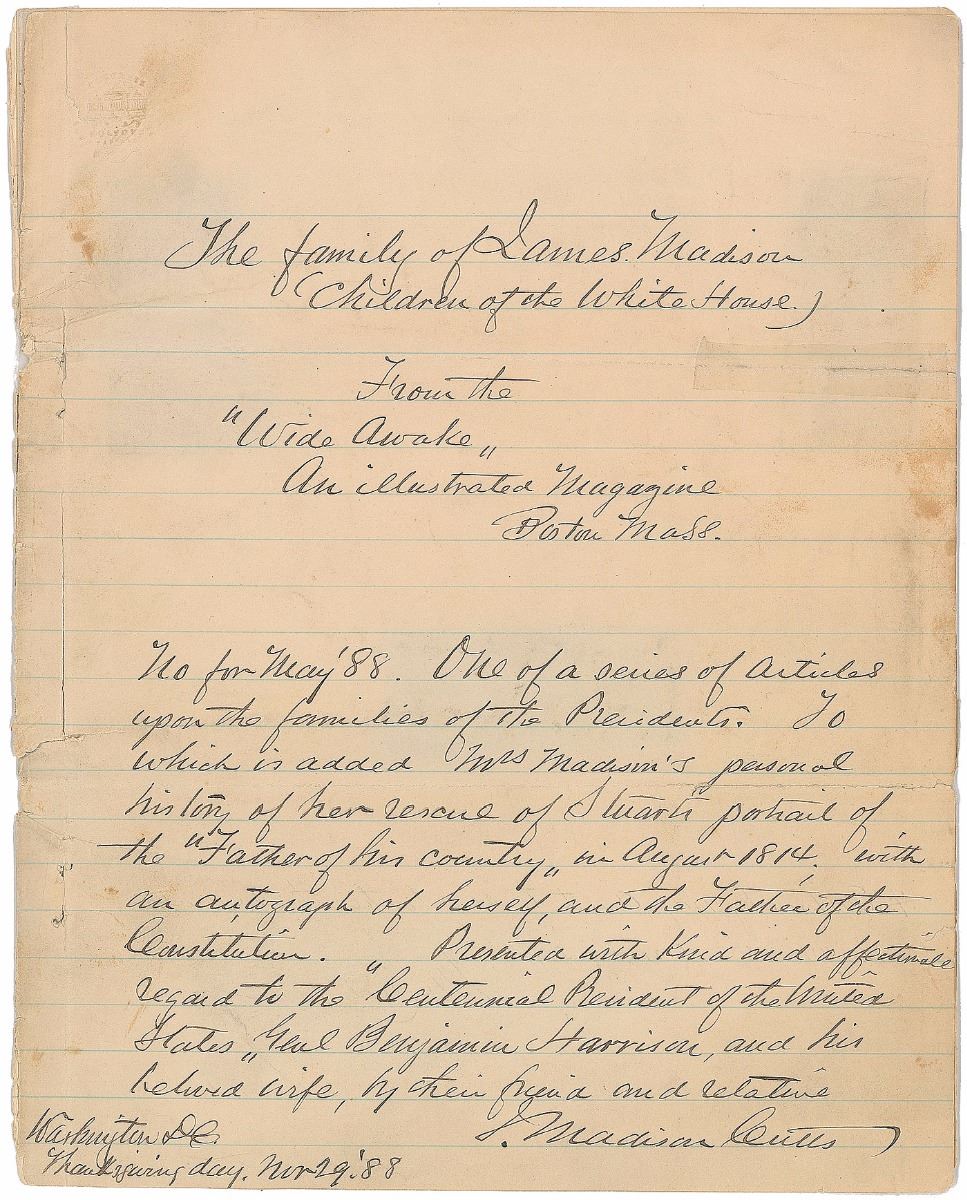 The family of James Madison
(Children of the White House.)
From the
"Wide Awake„
An illustrated Magazine
Boston Mass.
No for May '88. One of a series of articles
upon the families of the Presidents. To
which is added Mrs Madison's personal
history of her rescue of Stuart's portrait of
the "Father of his country„ in August 1814. with
an autograph of herself, and the Father of the
Constitution. „ Presented with Kind and affectionate
regard to the "Centennial President of the United
States„ Genl Benjamin Harrison, and his
beloved wife, by their friend and relative
J. Madison Cutts
Washington D.C.
Thanksgiving day. Nov 29' 88